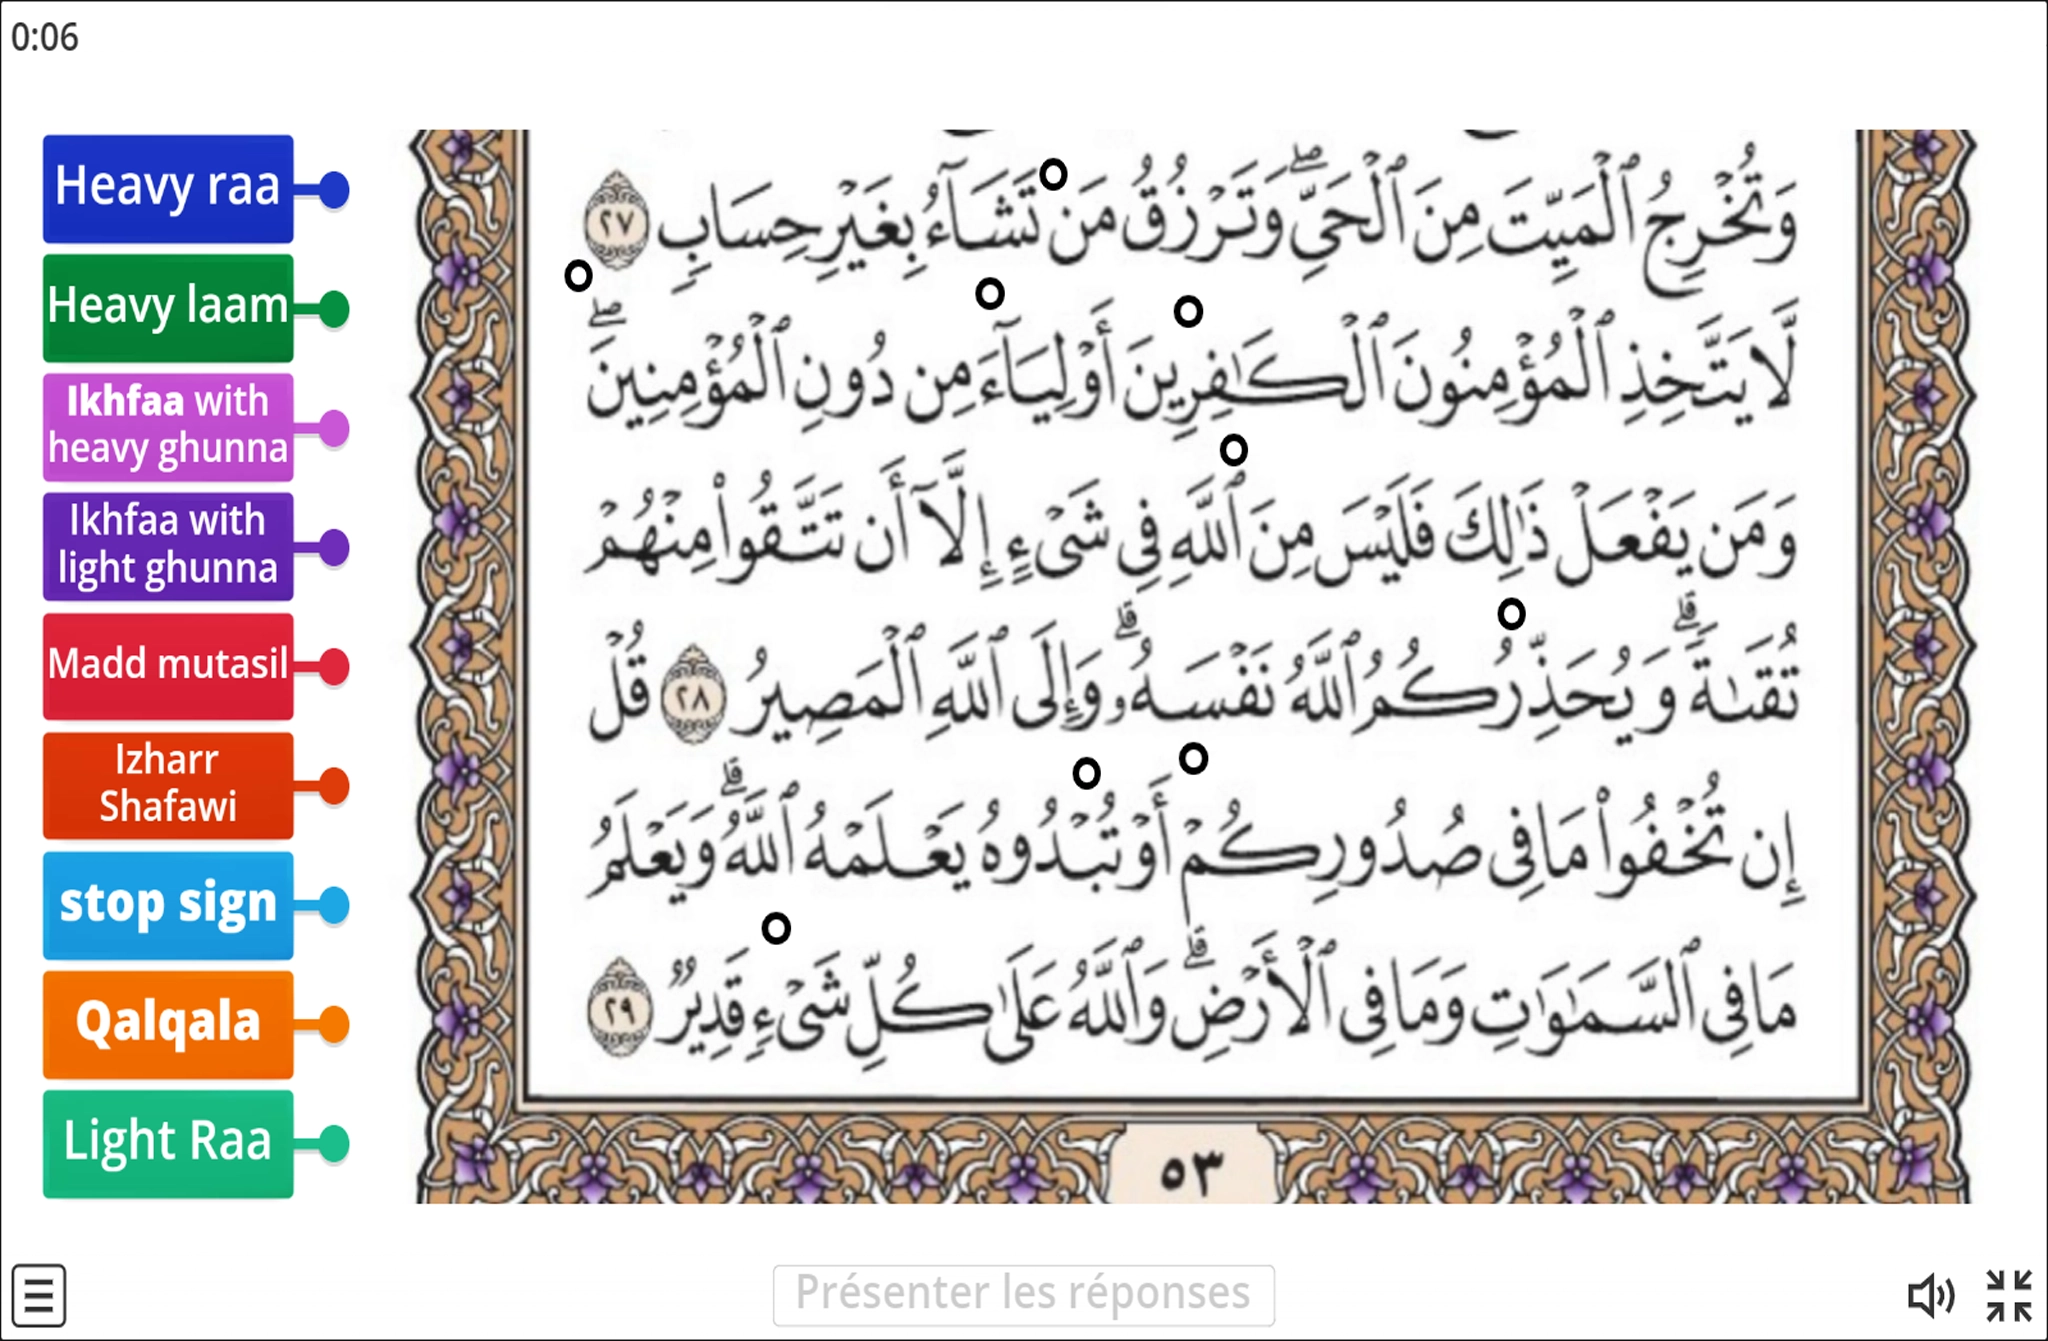 0:06
Heavy raa
Heavy laam
Ikhfaa with
heavy ghunna
Ikhfaa with
light ghunna
Madd mutasil
Izharr
Shafawi
stop sign
Qalqala
Light Raa
وَتُخْرِجُ ٱلْمَيِّتَ مِنَ ٱلْحَيِّ ۖ وَتَرْزُقُ مَن تَشَآءُ بِغَيْرِ حِسَابٍ ٢٧
لَّا يَتَّخِذِ ٱلْمُؤْمِنُونَ ٱلْكَـٰفِرِينَ أَوْلِيَآءَ مِن دُونِ ٱلْمُؤْمِنِينَ ۖ
وَمَن يَفْعَلْ ذَٰلِكَ فَلَيْسَ مِنَ ٱللَّهِ فِى شَىْءٍ إِلَّآ أَن تَتَّقُوا۟ مِنْهُمْ
تُقَىٰةً ۗ وَيُحَذِّرُكُمُ ٱللَّهُ نَفْسَهُۥ ۗ وَإِلَى ٱللَّهِ ٱلْمَصِيرُ ٢٨ قُلْ
إِن تُخْفُوا۟ مَا فِى صُدُورِكُمْ أَوْ تُبْدُوهُ يَعْلَمْهُ ٱللَّهُ ۗ وَيَعْلَمُ
مَا فِى ٱلسَّمَـٰوَٰتِ وَمَا فِى ٱلْأَرْضِ ۗ وَٱللَّهُ عَلَىٰ كُلِّ شَىْءٍ قَدِيرٌ ٢٩
٥٣
Présenter les réponses